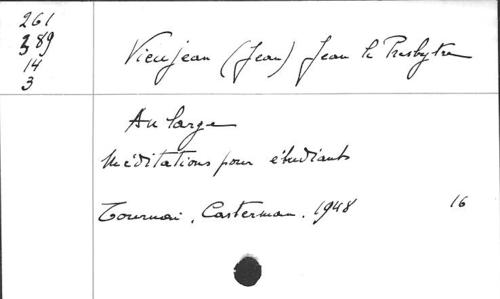 261
389
14
3
Vieujean (Jean) Jean le Presbytre
Au large
Méditations pour étudiants
Tournai, Casterman. 1948 16